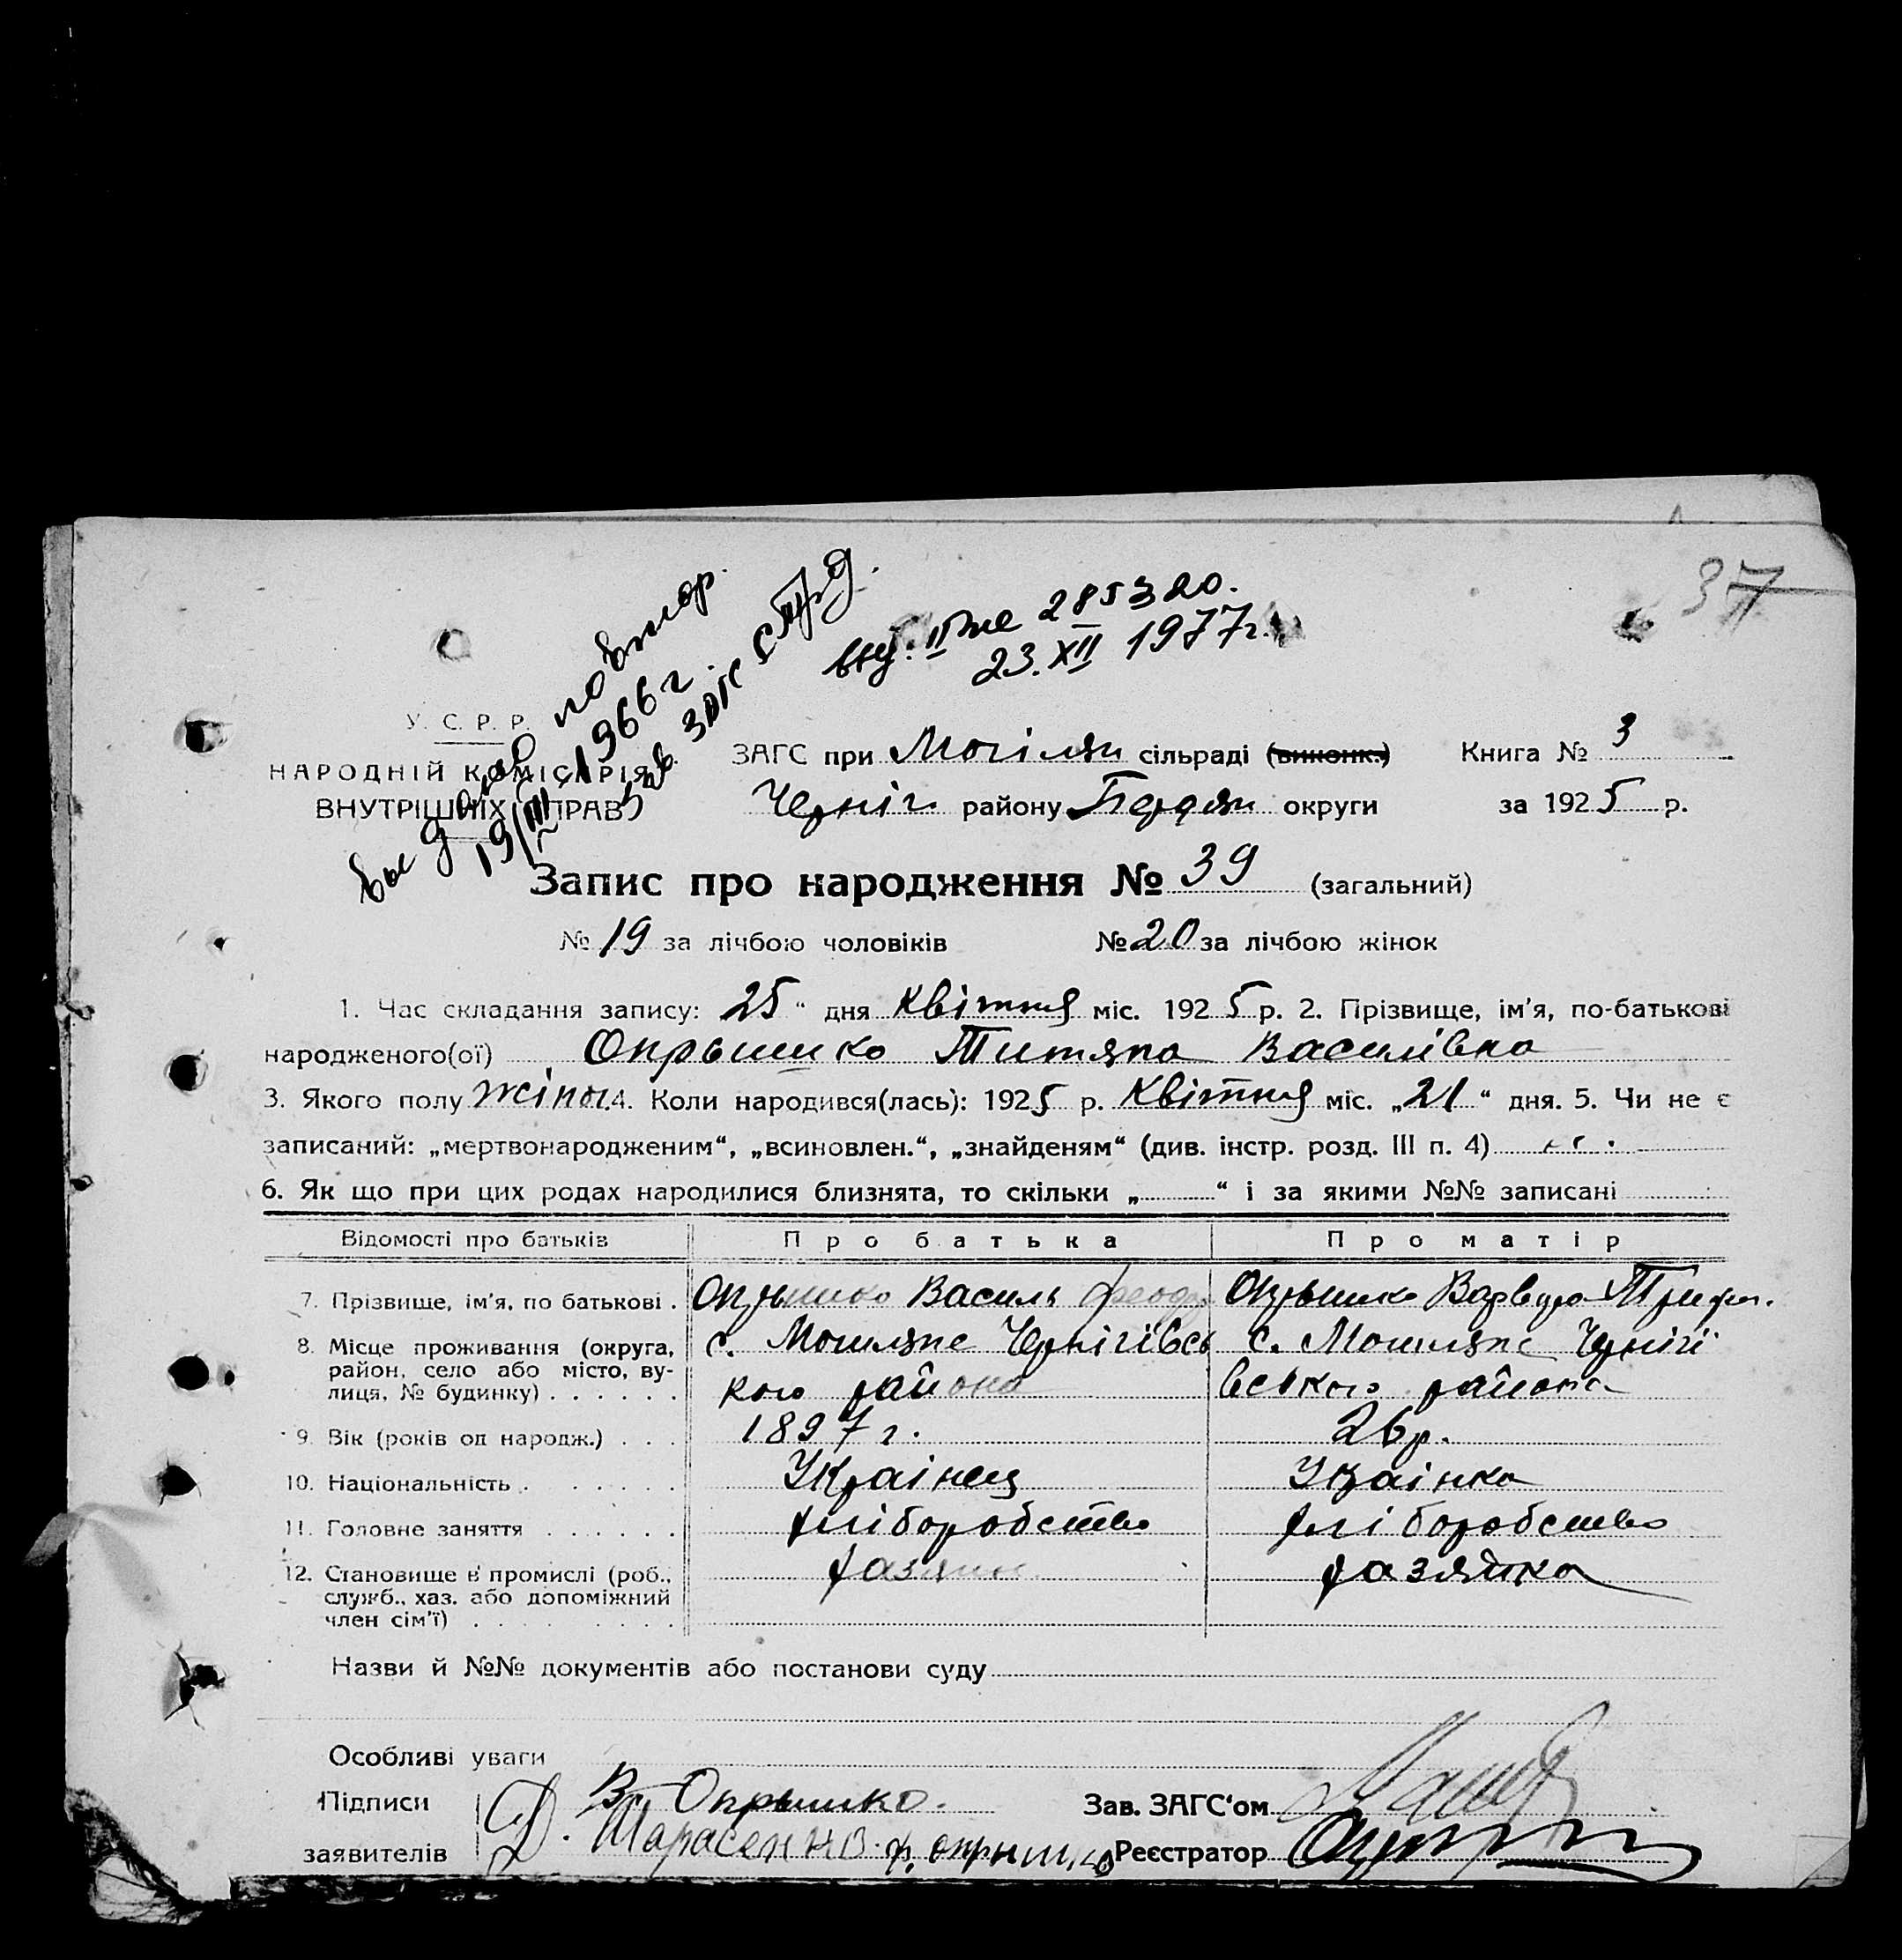 37
выдано повтор.
19/III 1966 г.
зав. ЗАГС
выд. II 285320.
23.XII 1977г.
У. С. Р. Р.
НАРОДНІЙ КОМІСАРІЯТ
ВНУТРІШНІХ СПРАВ
ЗАГС при Могілян сільраді (виконк.) Книга № 3
Черніг району Бердян округи за 1925 р.
Запис про народження № 39 (загальний)
№ 19 за лічбою чоловіків № 20 за лічбою жінок
1. Час складання запису: 25 “ дня Квітня міс. 1925 р. 2. Прізвище, ім'я, по-батькові
народженого(ої) Опрышко Титяна Василівна
3. Якого полу жіноч. 4. Коли народився(лась): 1925 р. Квітня міс. „21“ дня. 5. Чи не є
записаний: „мертвонародженим“, „всиновлен.“, „знайденям“ (див. інстр. розд. III п. 4)
6. Як що при цих родах народилися близнята, то скільки „ “ і за якими №№ записані
Відомості про батьків Про батька Про матір
7. Прізвище, ім'я, по батькові . Опрышко Василь Феодр Опрышко Варвара Триф.
8. Місце проживання (округа, с. Могиляне Чернігівсь с. Могиляне Чернігі
район, село або місто, ву- кого района вського района
лиця, № будинку) . . . . . .
9. Вік (років од народж.) . . . 1897 г. 26 р.
10. Національність . . . . . . Українец Українка
11. Головне заняття . . . . . . хліборобство хліборобство
12. Становище в промислі (роб., хазяин хазяйка
служб., хаз. або допоміжний
член сім'ї) . . . . . . . .
Назви й №№ документів або постанови суду
Особливі уваги
Підписи В. Опрышко. Зав. ЗАГС‘ом
заявителів Д. Тарасенко. Ф. Опрышко Реєстратор